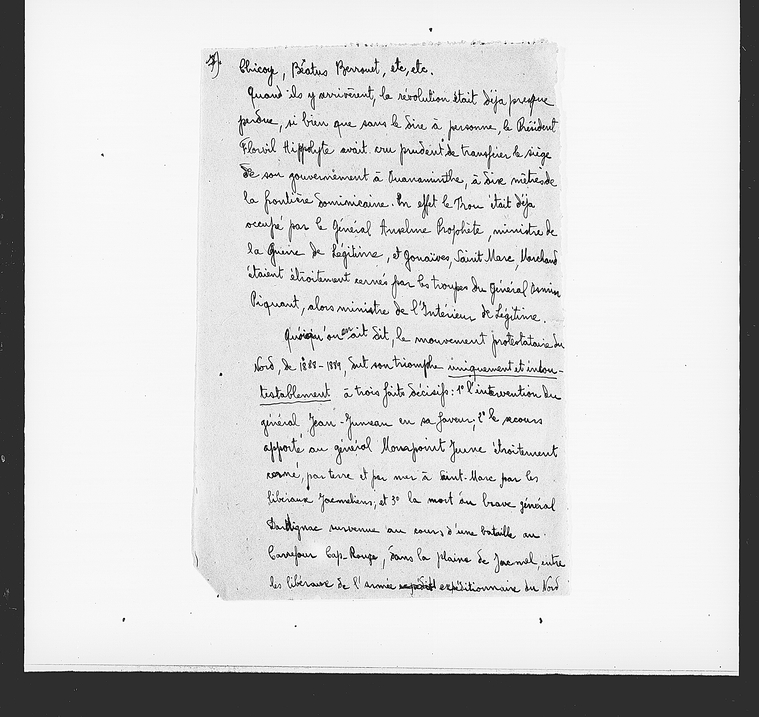 7).
Chicoy, Béatus Berrouet, etc, etc.
Quand ils y arrivèrent, la révolution était déja presque
perdue, si bien que sans le dire à personne, le Président
Florvil Hippolyte avait cru prudent de transférer le siège
de son gouvernement à Ouanaminthe, à dix mètres de
la frontière dominicaine. En effet le Trou était déjà
occupé par le Général Anselme Prophète, ministre de
la Guerre de Légitime, et Gonaïves, Saint Marc, Marchand
étaient étroitement cernés par les troupes du Général Osmin
Piquant, alors ministre de l'Intérieur de Légitime.
Quoiqu'on en ait dit, le mouvement protestataire du
Nord, de 1888-1889, dut son triomphe uniquement et incon-
testablement à trois faits décisifs: 1° l'intervention du
général Jean-Jumeau en sa faveur; 2° le secours
apporté au général Monpoint Jeune étroitement
cerné, par terre et par mer à Saint-Marc par les
libéraux Jacméliens; et 3° la mort du brave général
Dartignac survenue au cours d'une bataille au
Carrefour Cap-Rouge, dans la plaine de Jacmel, entre
les libéraux de l'armée expéditionnaire du Nord